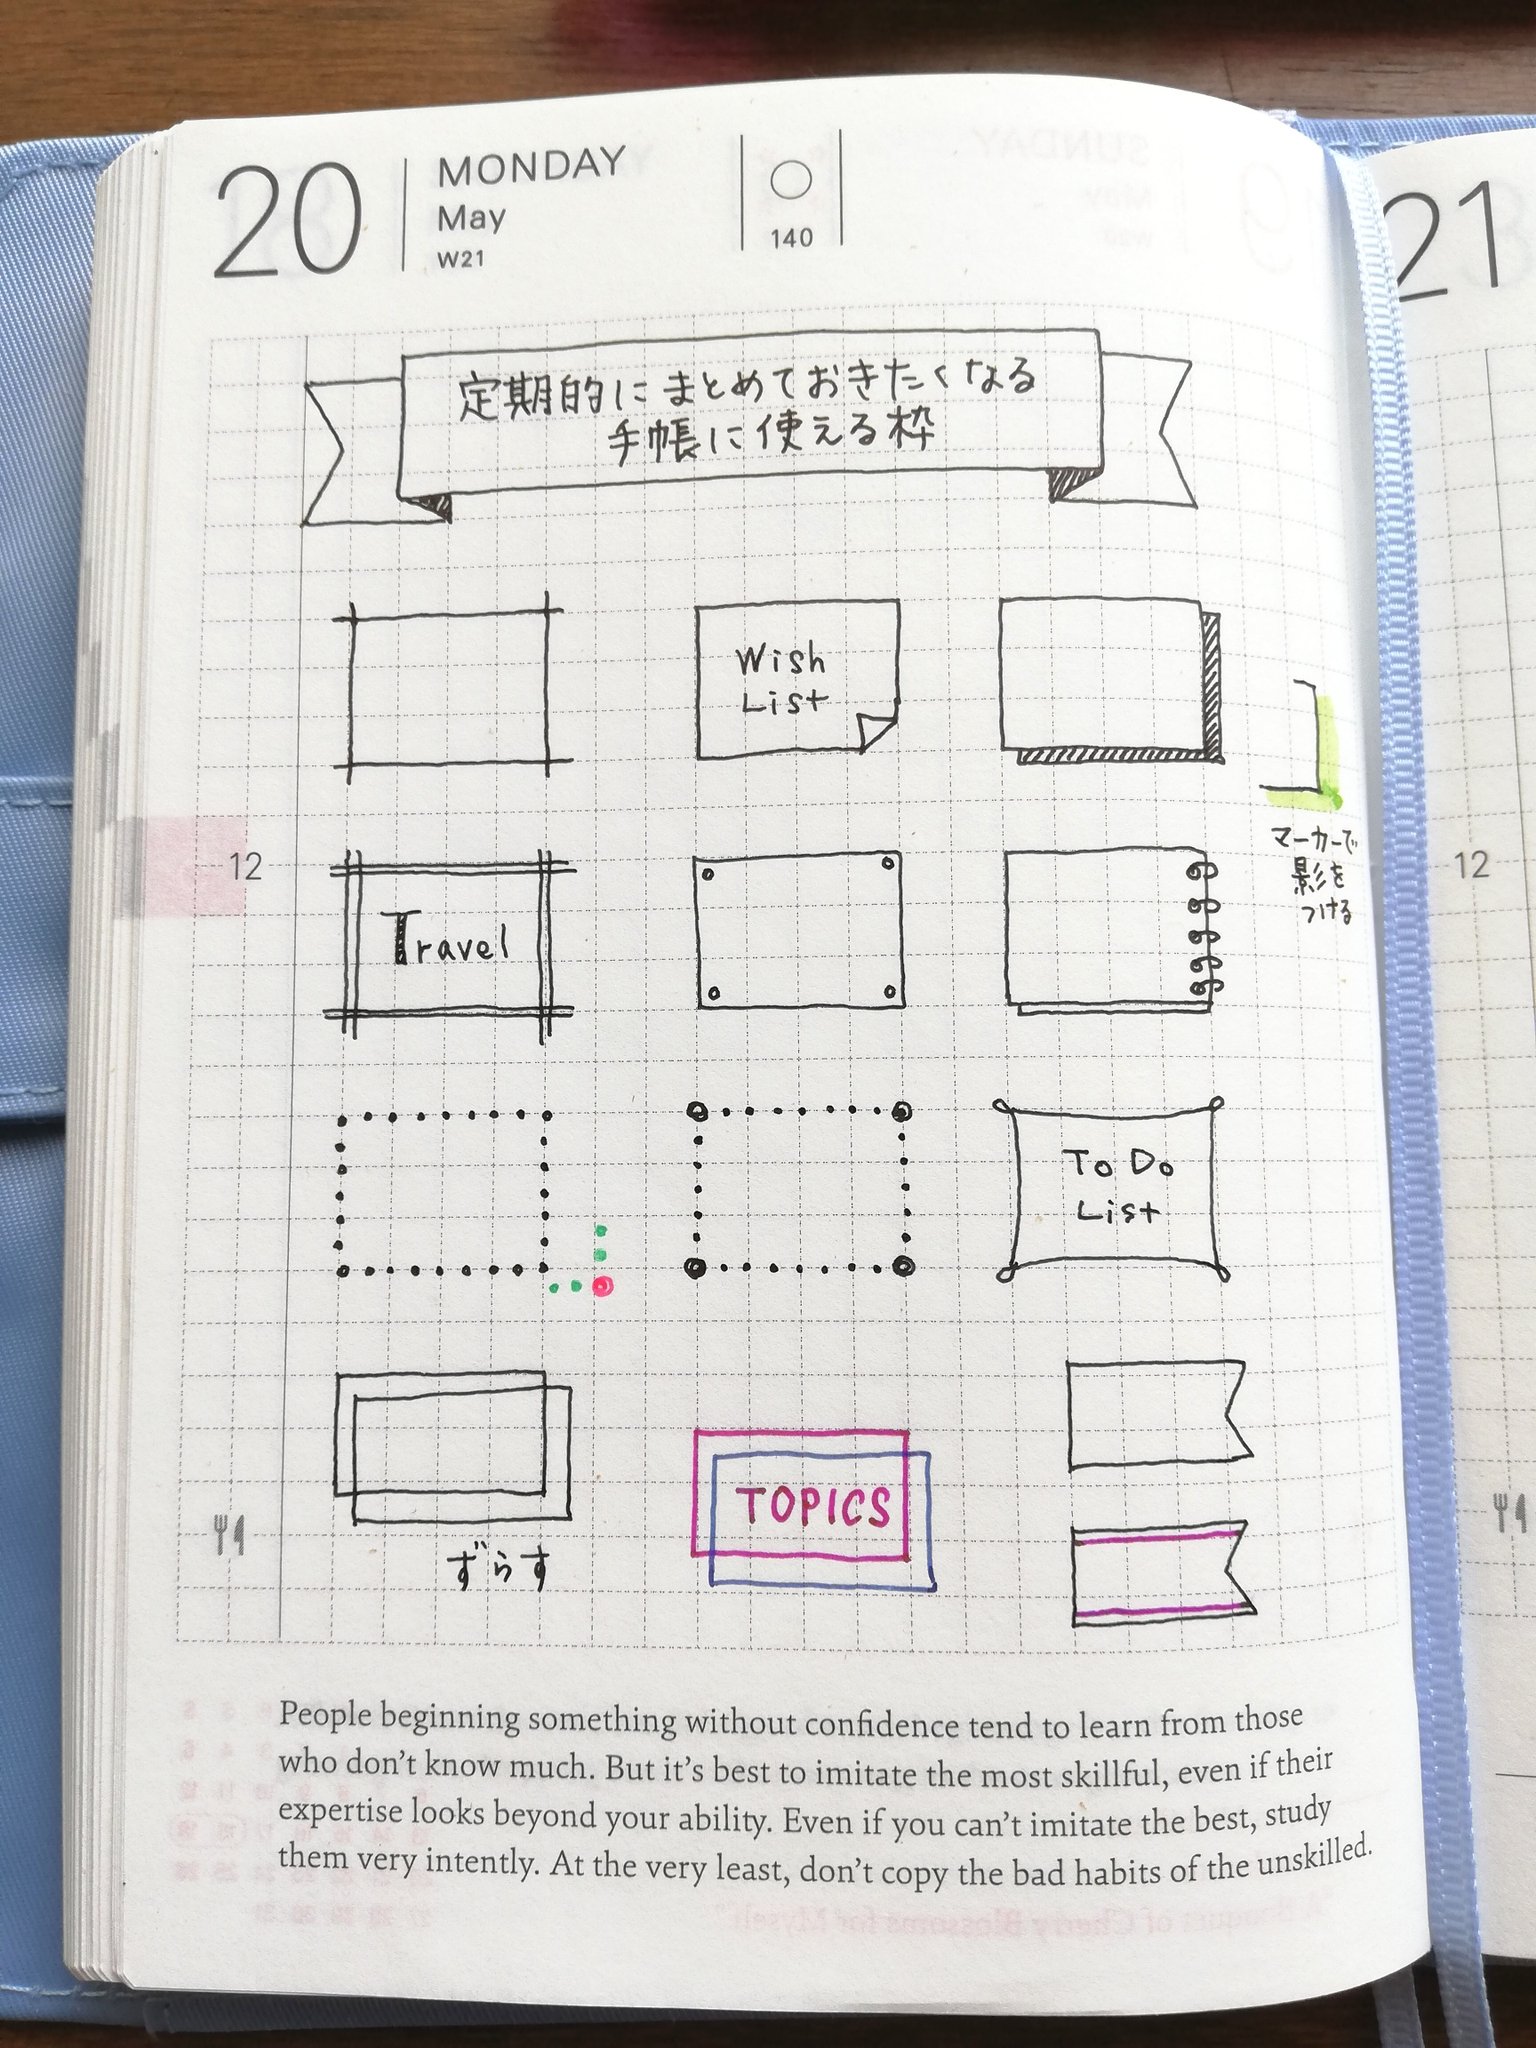 20
MONDAY
May
W21
140
21
定期的にまとめておきたくなる
手帳に使える枠
Wish
List
マーカーで
影を
つける
12
Travel
12
To Do
List
TOPICS
ずらす
People beginning something without confidence tend to learn from those
who don't know much. But it's best to imitate the most skillful, even if their
expertise looks beyond your ability. Even if you can't imitate the best, study
them very intently. At the very least, don't copy the bad habits of the unskilled.